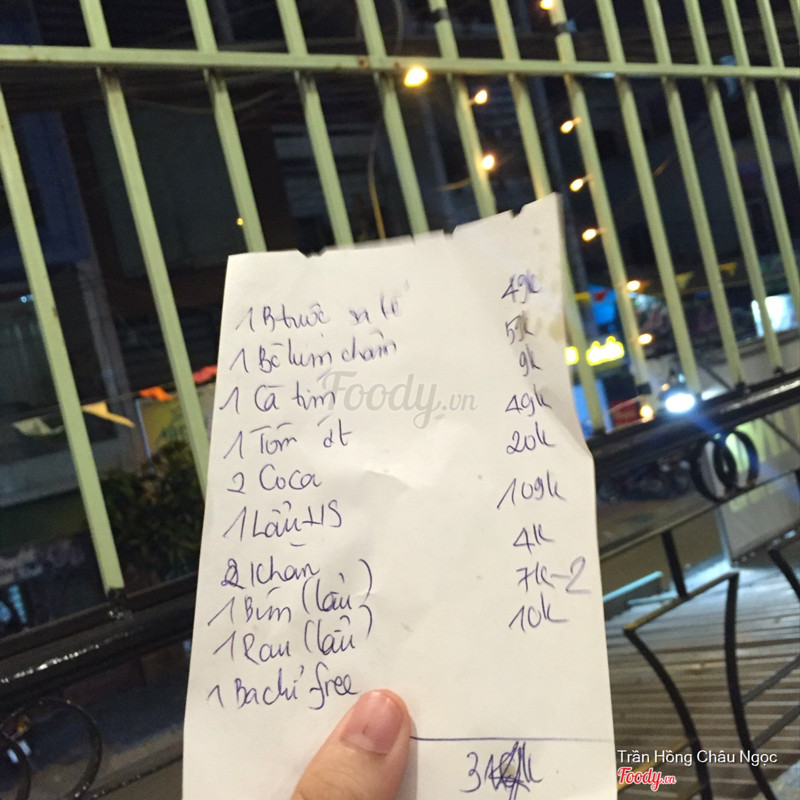 1 B tuộc sa tế 49k
1 Bò lụi chấm 5k
1 Cà tím 9k
1 Tôm ớt 49k
2 Coca 20k
1 Lẩu HS 109k
2 Khăn 4k
1 Bún (lẩu) 7k-2
1 Rau (lẩu) 10k
1 Ba chỉ free
Foody.vn
Trần Hồng Châu Ngọc
Foody.vn